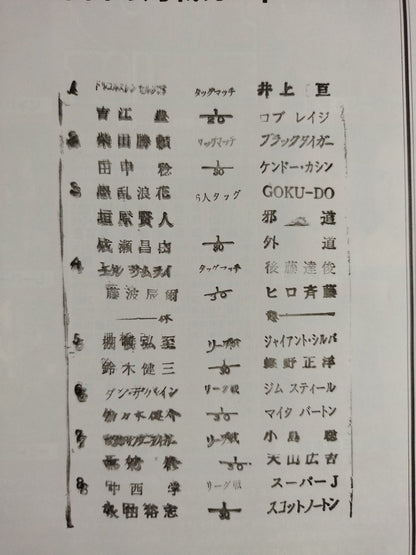 1 タッグマッチ 井上 亘
吉江 豊 1/20 ロブ レイジ
2 柴田勝頼 タッグマッチ ブラックタイガー
田中 稔 1/30 ケンドー・カシン
3 乱浪花 6人タッグ GOKU-DO
垣原賢人 邪 道
成瀬昌由 1/30 外 道
4 エル サムライ タッグマッチ 後藤達俊
藤波辰爾 1/30 ヒロ斉藤
休 憩
5 棚橋弘至 リーグ戦 ジャイアント・シルバ
鈴木健三 1/30 蝶野正洋
6 ダン・デバイン リーグ戦 ジム スティール
佐々木健介 1/30 マイク バートン
7 リーグ戦 小島 聡
1/30 天山広吉
8 中西 学 リーグ戦 スーパーJ
永田裕志 1/30 スコットノートン